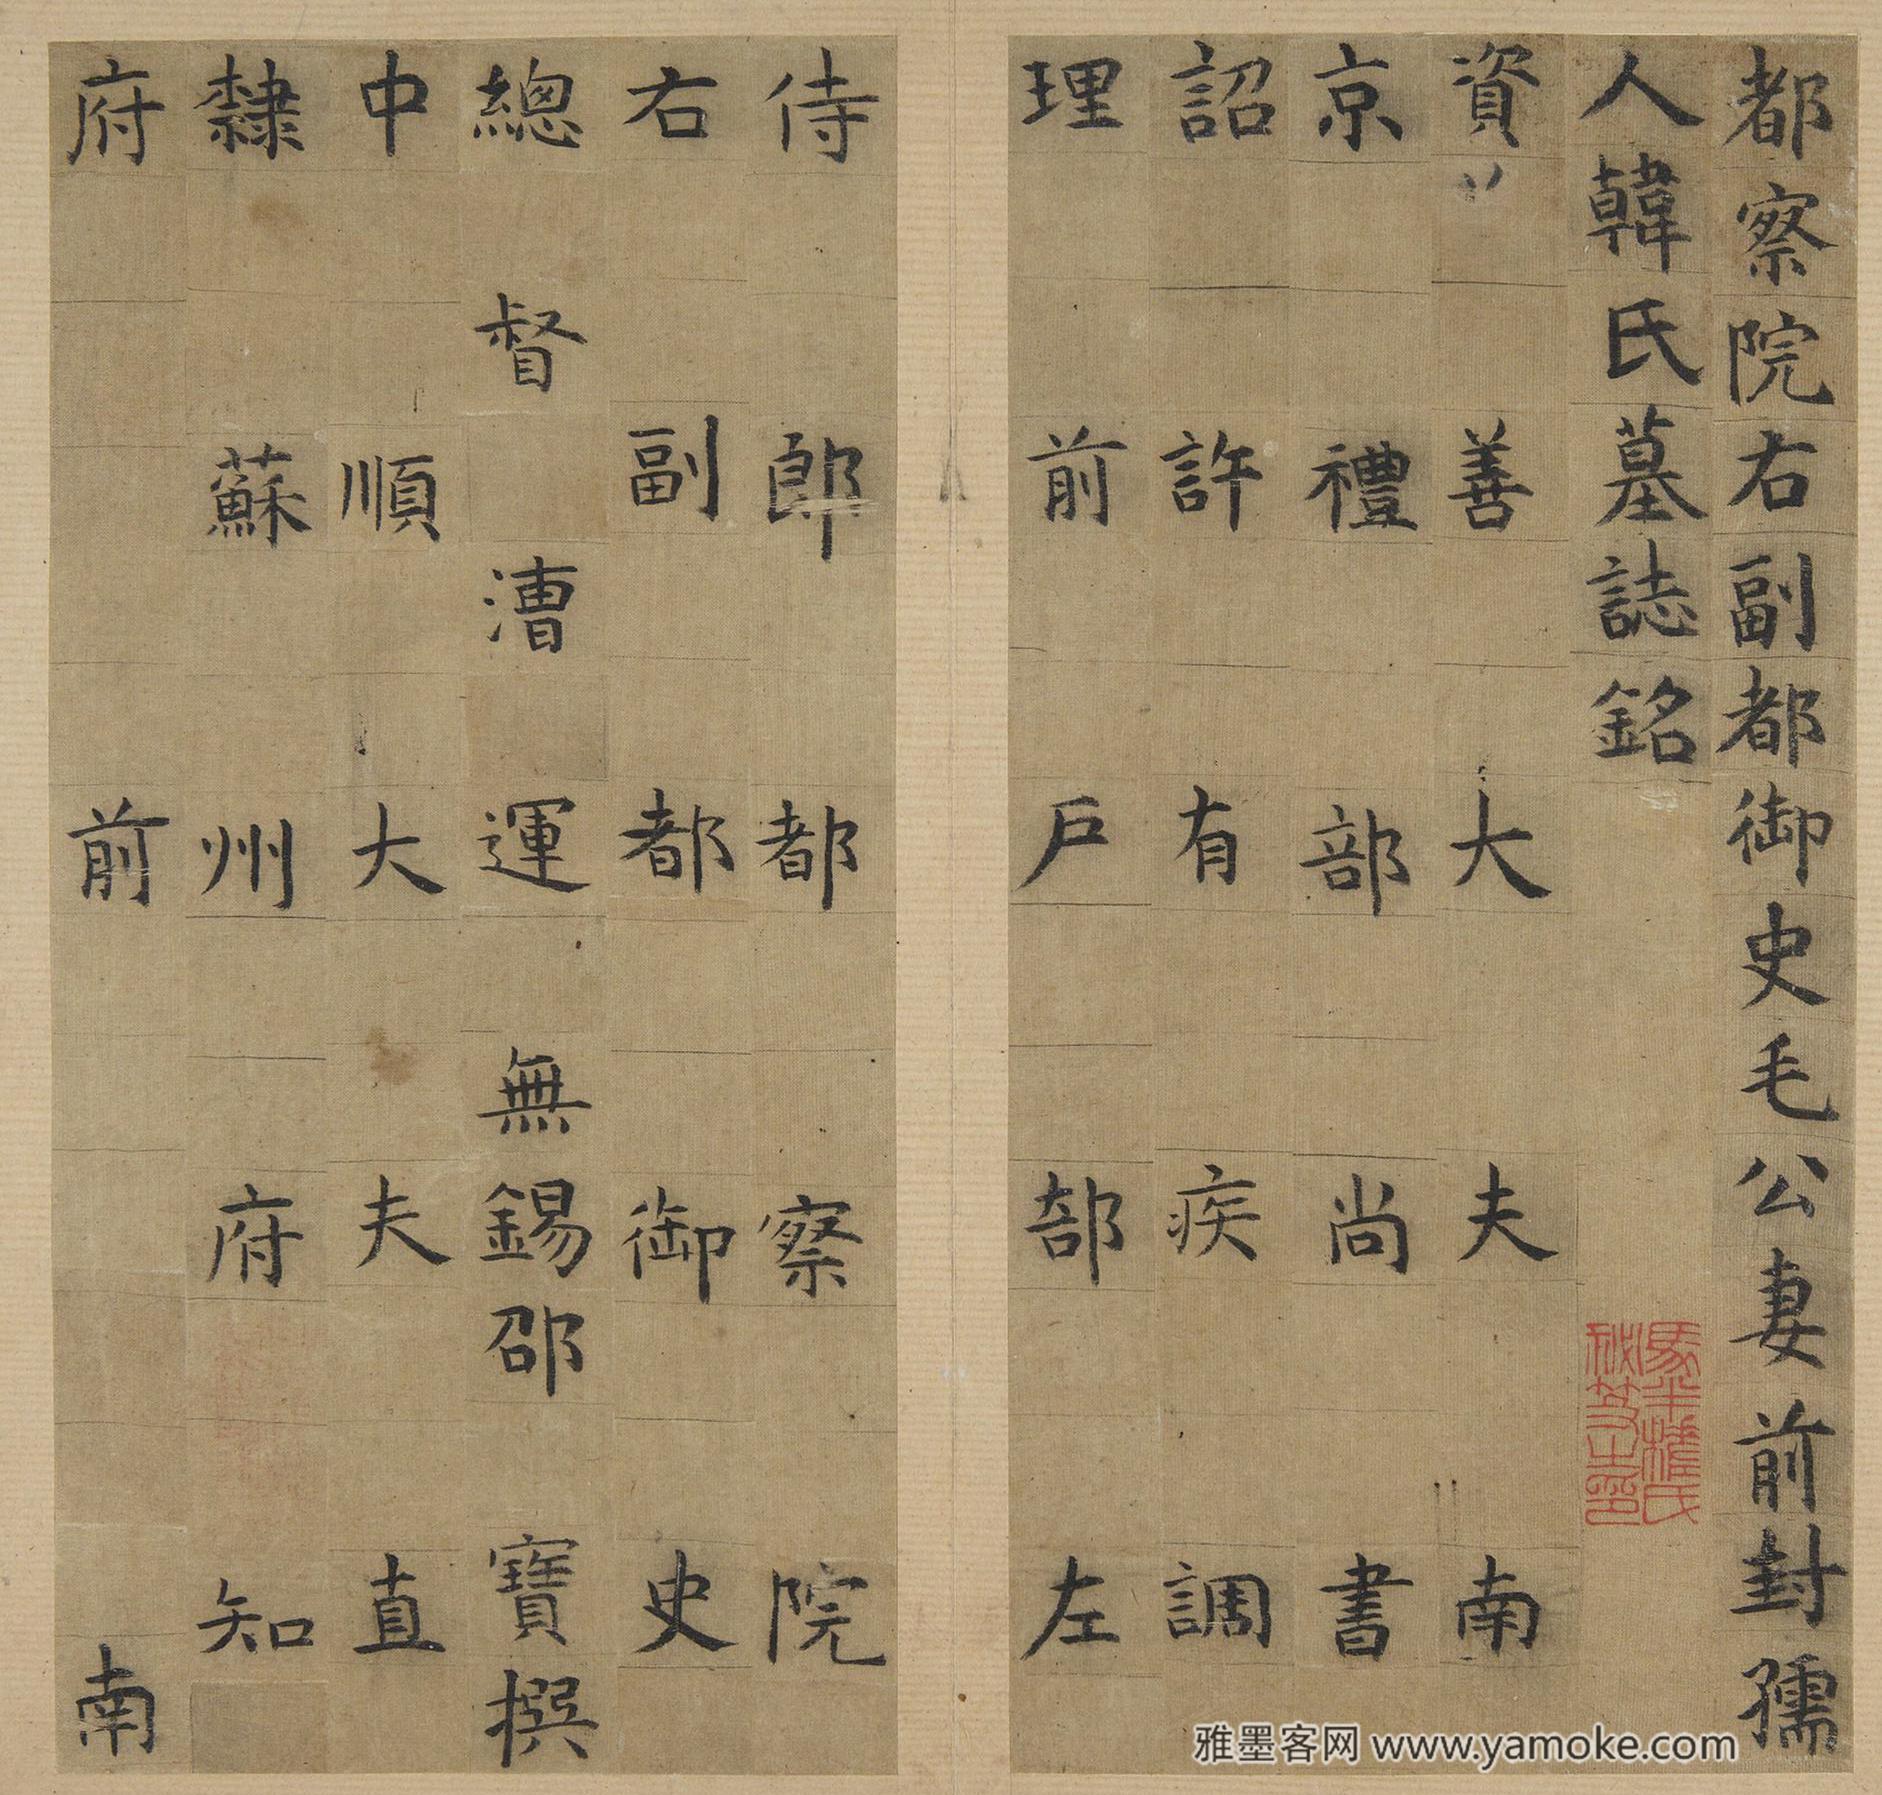 都察院右副都御史毛公妻前封孺
人韓氏墓誌銘
資善大夫南
京禮部尚書
詔許有疾調
理前戶部左
侍郎都察院
右副都御史
總督漕運無錫邵寶撰
中順大夫直
隸蘇州府知
府前南
雅墨客网 www.yamoke.com